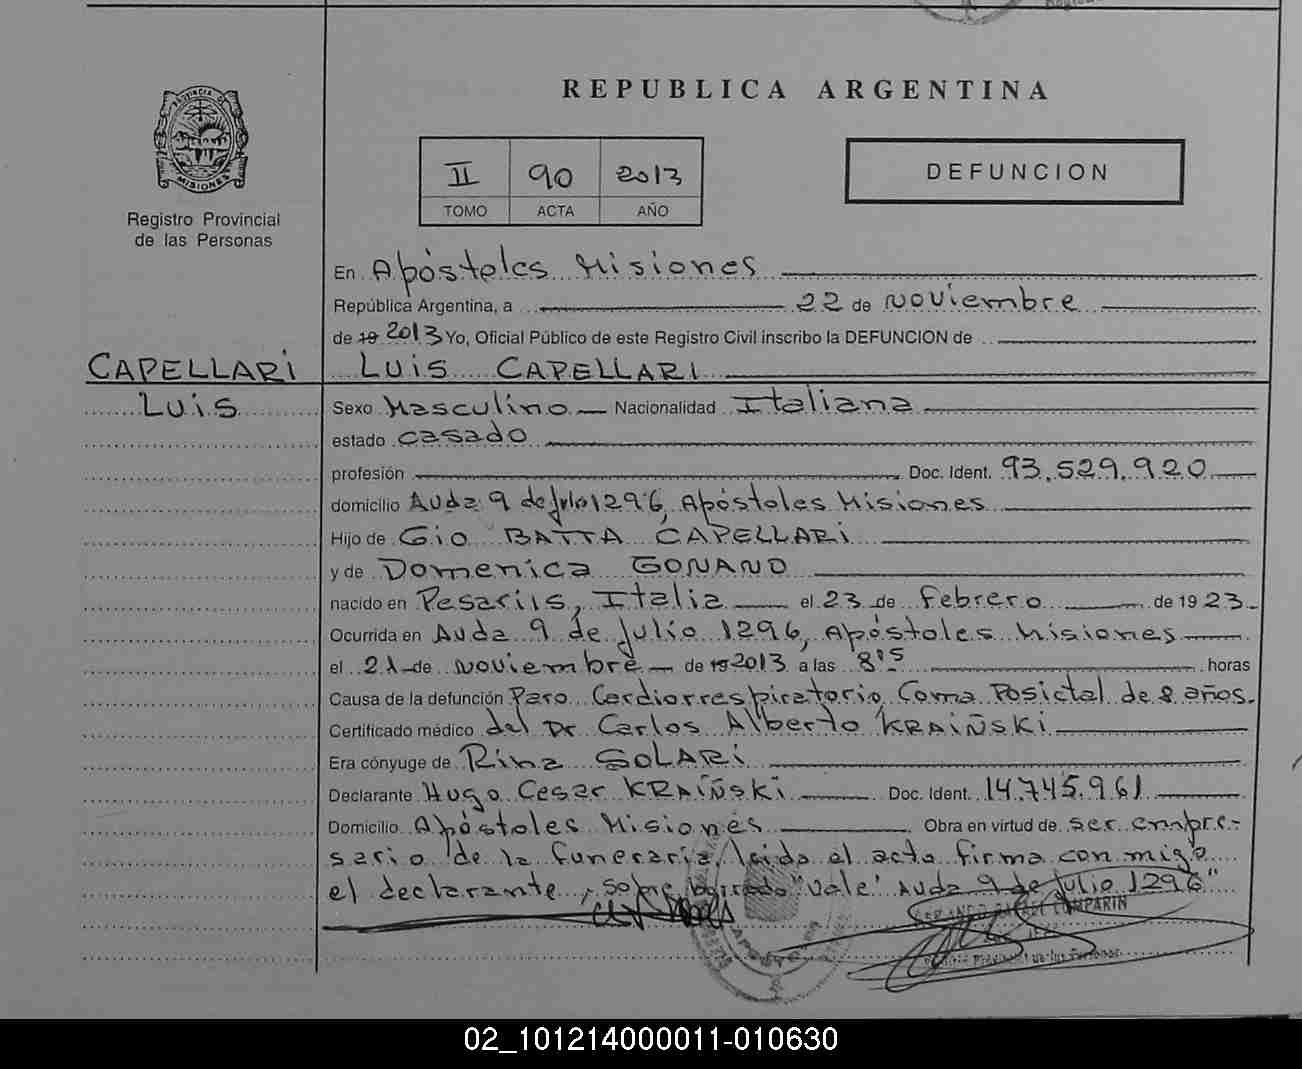 REPUBLICA ARGENTINA
PROVINCIA DE
MISIONES
Registro Provincial
de las Personas
II 90 2013
TOMO ACTA AÑO
DEFUNCION
En Apóstoles Misiones
República Argentina, a 22 de noviembre
de 19 2013 Yo, Oficial Público de este Registro Civil inscribo la DEFUNCION de
CAPELLARi LUIS CAPELLARI
LUiS Sexo Masculino Nacionalidad Italiana
estado casado
profesión Doc. Ident. 93.529.920
domicilio Avda 9 de Julio 1296, Apóstoles Misiones
Hijo de Gio BATTA CAPELLARi
y de Domenica GONANO
nacido en Pesariis, Italia el 23 de Febrero de 1923
Ocurrida en Avda 9 de Julio 1296, Apóstoles Misiones
el 21 de noviembre de 19 2013 a las 8'15 horas
Causa de la defunción Paro Cardiorrespiratorio, Coma Posictal de 8 años.
Certificado médico del Dr Carlos Alberto KRAIÑSKi
Era cónyuge de Rina SOLARi
Declarante Hugo Cesar KRAIÑSKi Doc. Ident. 14.745.961
Domicilio Apóstoles Misiones Obra en virtud de ser empre-
sario de la funeraria, leida el acta firma con migo
el declarante, sobre borrado "Vale" Avda 9 de Julio 1296"
COMPARIN
Provincial de las Personas
02_101214000011-010630